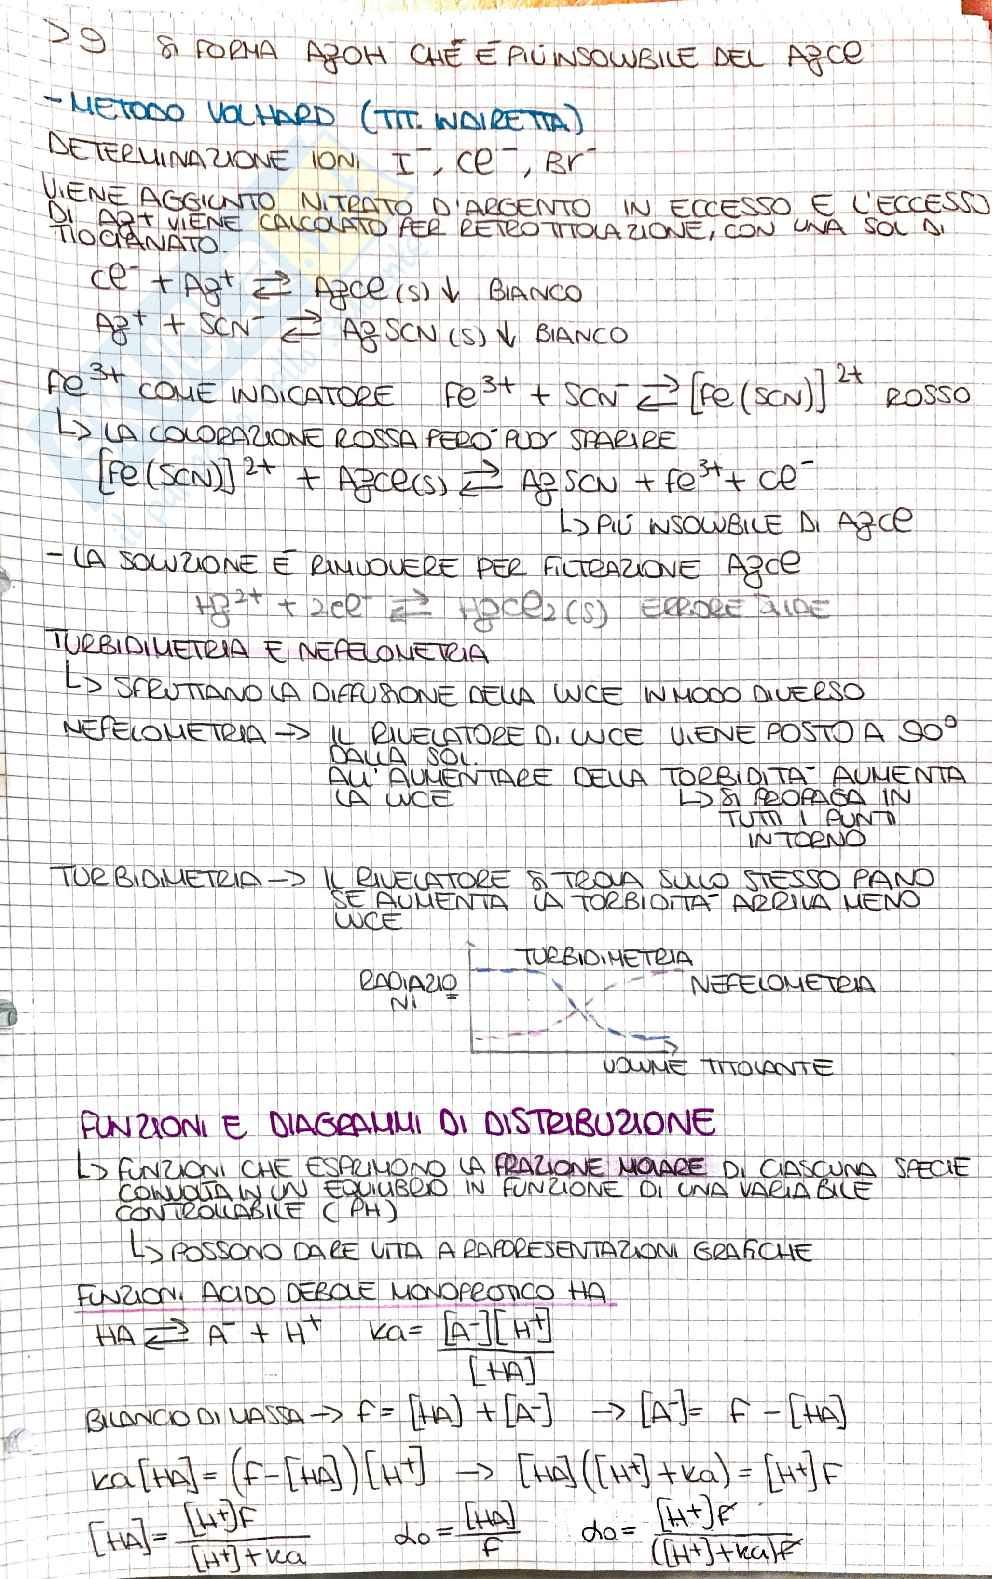 >9 SI FORMA AgOH CHE È PIÙ INSOLUBILE DEL AgCl
- METODO VOLHARD (TIT. INDIRETTA)
DETERMINAZIONE IONI I⁻, Cl⁻, Br⁻
VIENE AGGIUNTO NITRATO D'ARGENTO IN ECCESSO E L'ECCESSO
DI Ag+ VIENE CALCOLATO PER RETROTITOLAZIONE, CON UNA SOL DI
TIOCIANATO.
Cl⁻ + Ag⁺ ⇄ AgCl (s) ↓ BIANCO
Ag⁺ + SCN⁻ ⇄ AgSCN (s) ↓ BIANCO
Fe³⁺ COME INDICATORE Fe³⁺ + SCN⁻ ⇄ [Fe(SCN)]²⁺ ROSSO
↳ LA COLORAZIONE ROSSA PERÒ PUÒ SPARIRE
[Fe(SCN)]²⁺ + AgCl(s) ⇄ AgSCN + Fe³⁺ + Cl⁻
↳ PIÙ INSOLUBILE DI AgCl
- LA SOLUZIONE È RIMUOVERE PER FILTRAZIONE AgCl
Hg²⁺ + 2Cl⁻ ⇄ HgCl₂(s) ERRORE
TURBIDIMETRIA E NEFELOMETRIA
↳ SFRUTTANO LA DIFFUSIONE DELLA LUCE IN MODO DIVERSO
NEFELOMETRIA → IL RIVELATORE DI LUCE VIENE POSTO A 90°
DALLA SOL.
ALL'AUMENTARE DELLA TORBIDITÀ AUMENTA
LA LUCE ↳ SI PROPAGA IN
TUTTI I PUNTI
INTORNO
TURBIDIMETRIA → IL RIVELATORE SI TROVA SULLO STESSO PIANO
SE AUMENTA LA TORBIDITÀ ARRIVA MENO
LUCE
TURBIDIMETRIA
RADIAZIO
NI
NEFELOMETRIA
VOLUME TITOLANTE
FUNZIONI E DIAGRAMMI DI DISTRIBUZIONE
↳ FUNZIONI CHE ESPRIMONO LA FRAZIONE MOLARE DI CIASCUNA SPECIE
COINVOLTA IN UN EQUILIBRIO IN FUNZIONE DI UNA VARIABILE
CONTROLLABILE (PH)
↳ POSSONO DARE VITA A RAPPRESENTAZIONI GRAFICHE
FUNZIONI ACIDO DEBOLE MONOPROTICO HA
HA ⇄ A⁻ + H⁺ Ka = [A⁻][H⁺] / [HA]
BILANCIO DI MASSA → F = [HA] + [A⁻] → [A⁻] = F - [HA]
Ka[HA] = (F - [HA])[H⁺] → [HA]([H⁺] + Ka) = [H⁺]F
[HA] = [H⁺]F / [H⁺] + Ka α₀ = [HA] / F α₀ = [H⁺]F / ([H⁺] + Ka)F